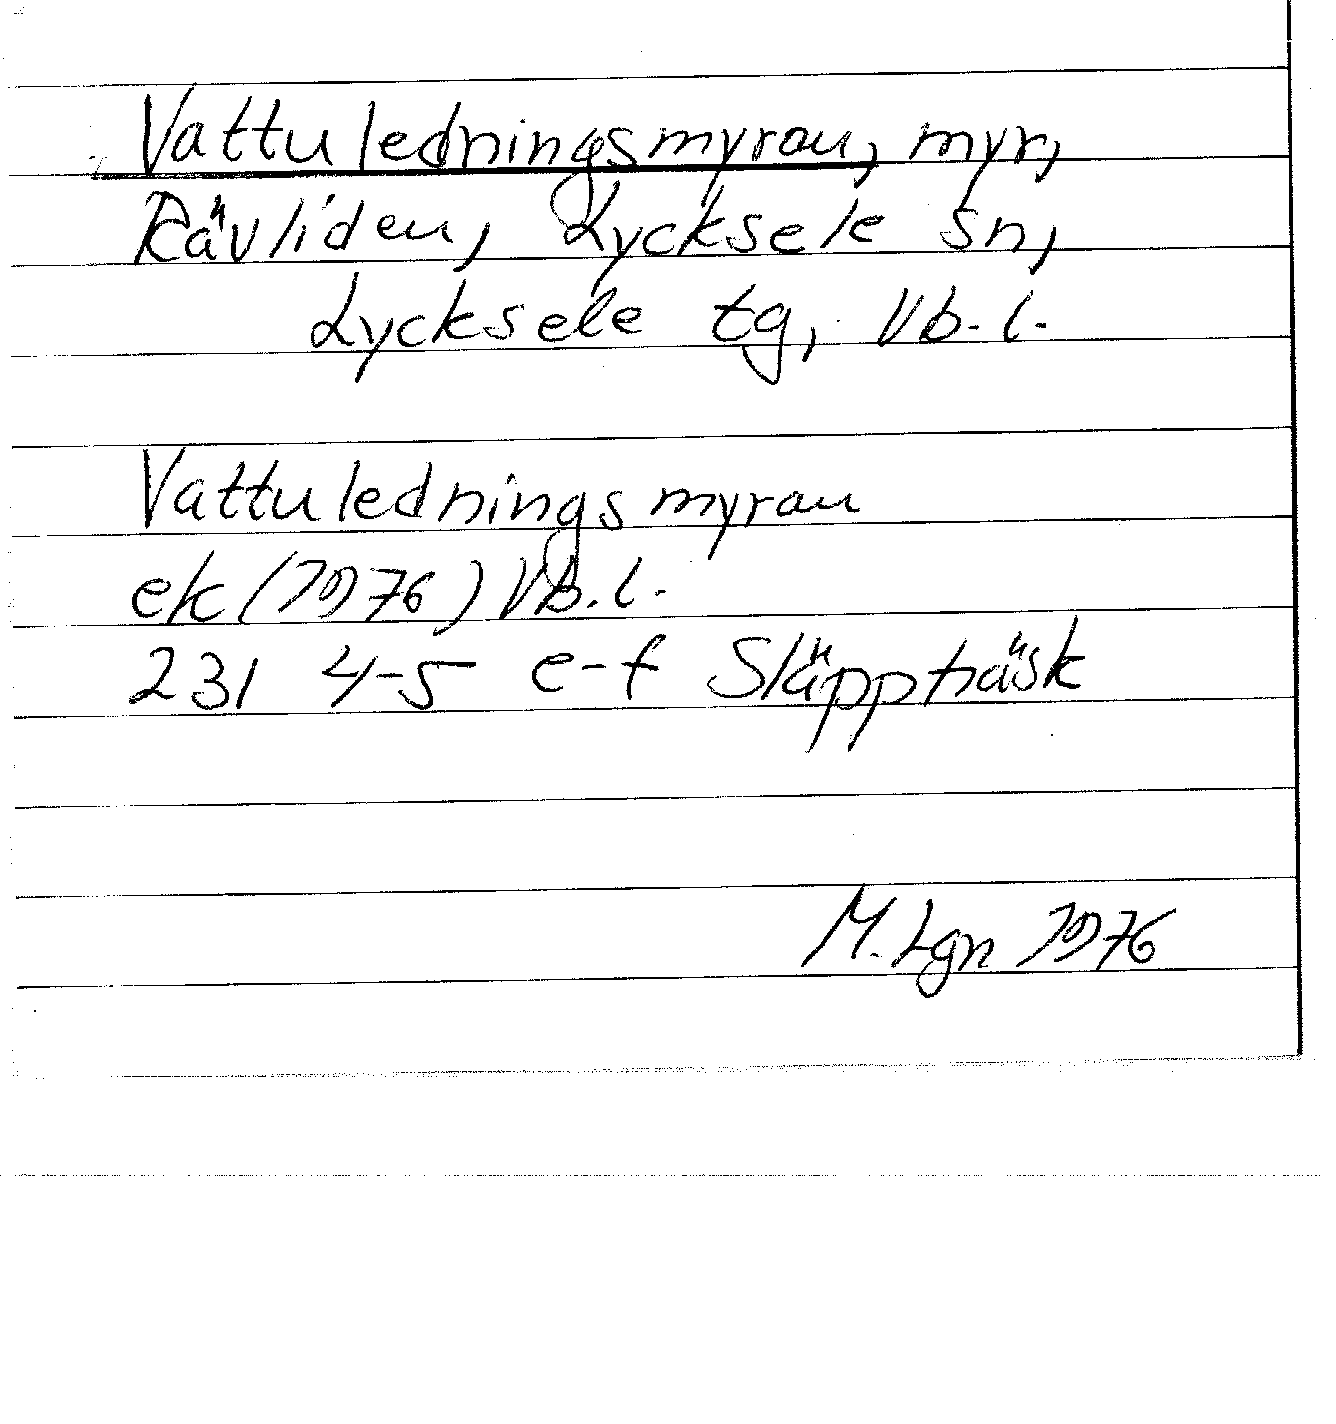 Vattuledningsmyran, myr,
Rävliden, Lycksele sn,
Lycksele tg, Vb. l.
Vattuledningsmyran
ek (1976) Vb. l.
231 4-5 e-f Släppträsk
M. Lgn 1976